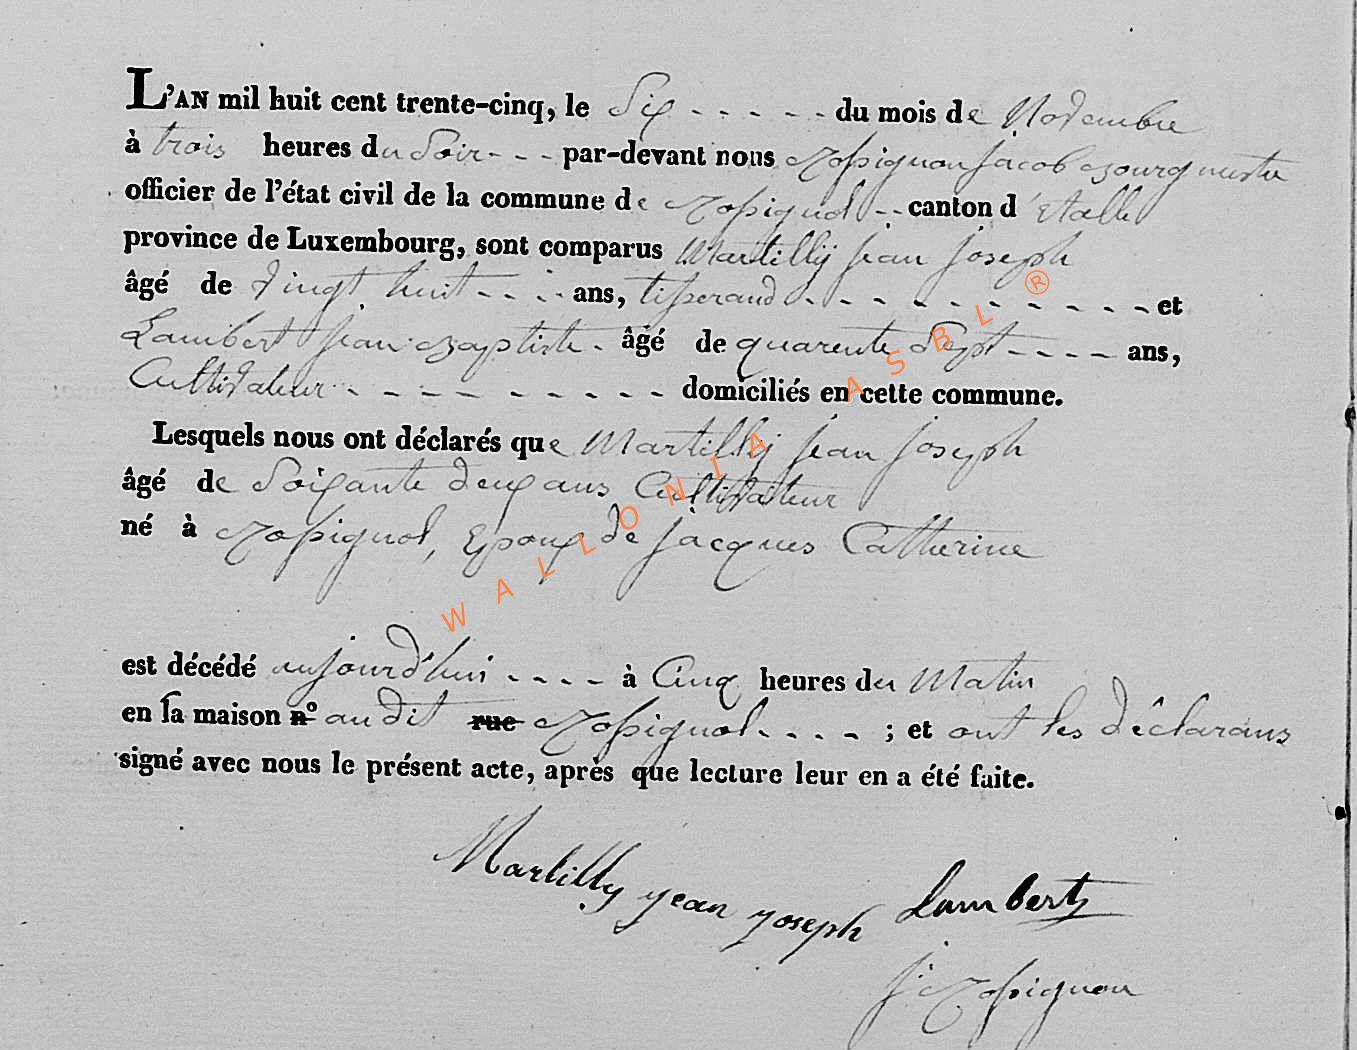 L'AN mil huit cent trente-cinq, le Six - - - - - du mois de Novembre
à trois heures du Soir - - - par-devant nous Rossignon Jacob Bourgmestre
officier de l'état civil de la commune de Rossignol - - canton d'Etalle
province de Luxembourg, sont comparus Martilly Jean Joseph
âgé de vingt huit - - - - ans, tisserand - - - - - - - - - - - et
Lambert Jean Baptiste - âgé de quarente Sept - - - - ans,
Cultivateur - - - - - - - - - - domiciliés en cette commune.
Lesquels nous ont déclarés que Martilly Jean Joseph
âgé de Soixante deux ans Cultivateur
né à Rossignol, Epoux de Jacques Catherine
WALLONIA ASBL ®
est décédé aujourd'hui - - - - à Cinq heures du Matin
en sa maison n° au dit rue Rossignol - - - - ; et ont les déclarans
signé avec nous le présent acte, après que lecture leur en a été faite.
Martilly jean joseph Lambert
J. Rossignon